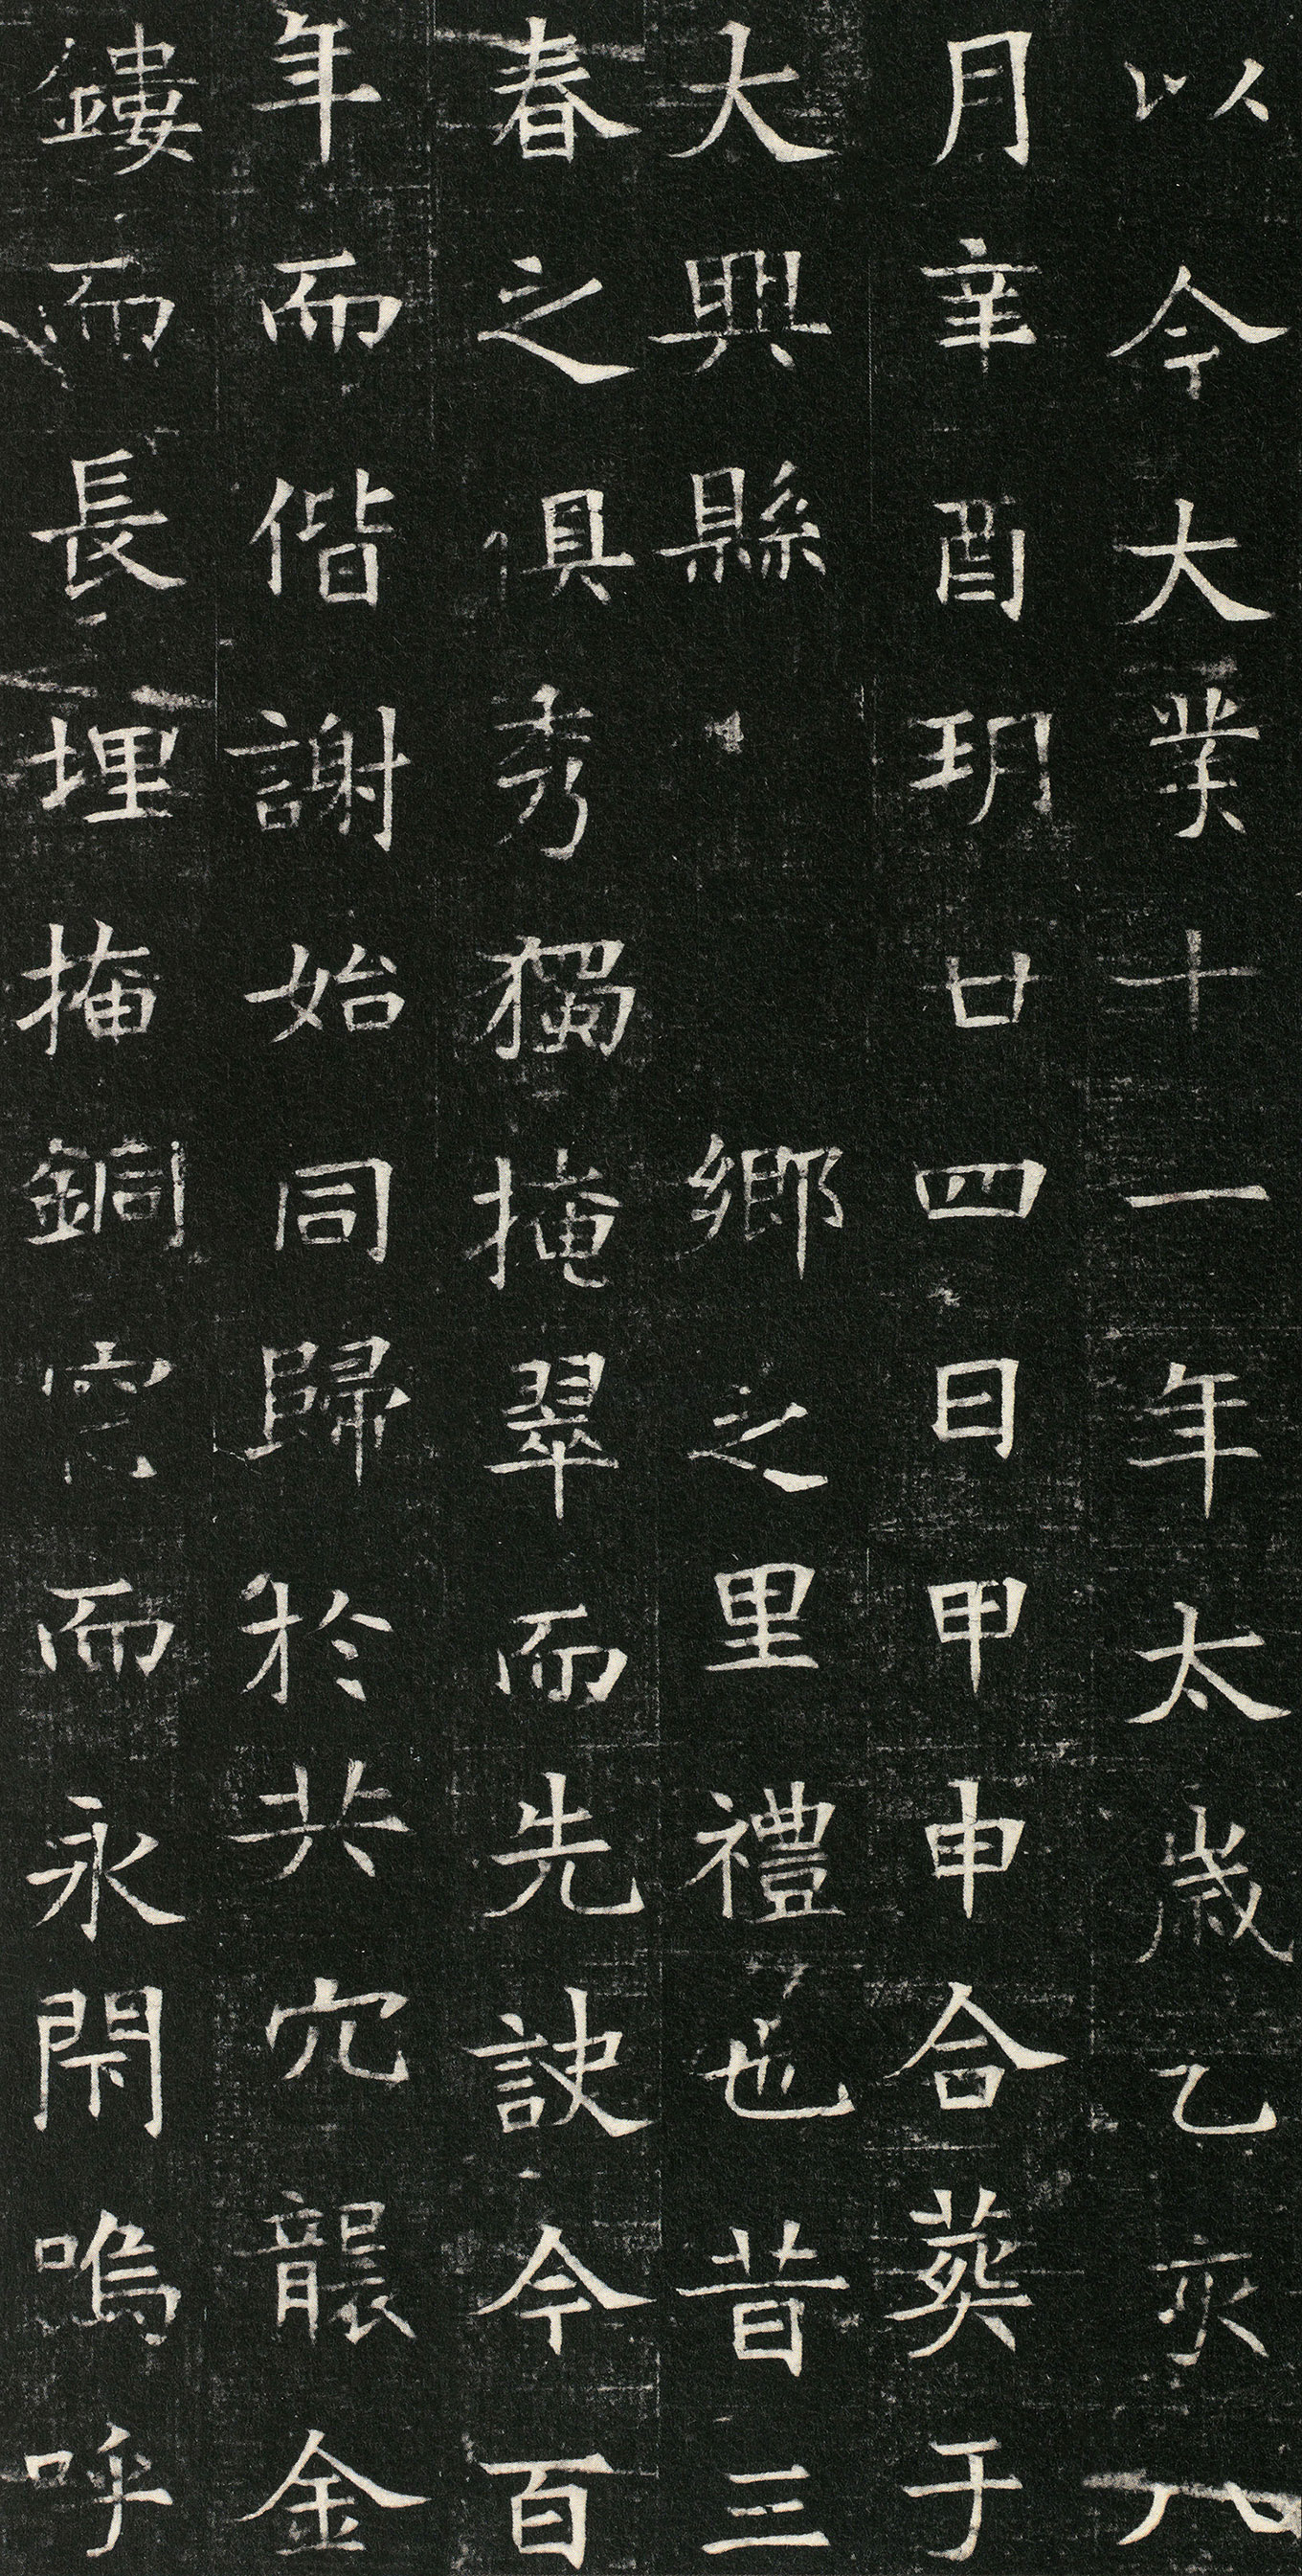 以今大業十一年太歲乙亥八
月辛酉玥廿四日甲申合葬于
大興縣 鄉之里禮也昔三
春之俱秀獨掩翠而先訣今百
年而偕謝始同歸於共穴襲金
鏤而長埋掩銅而永閇嗚呼